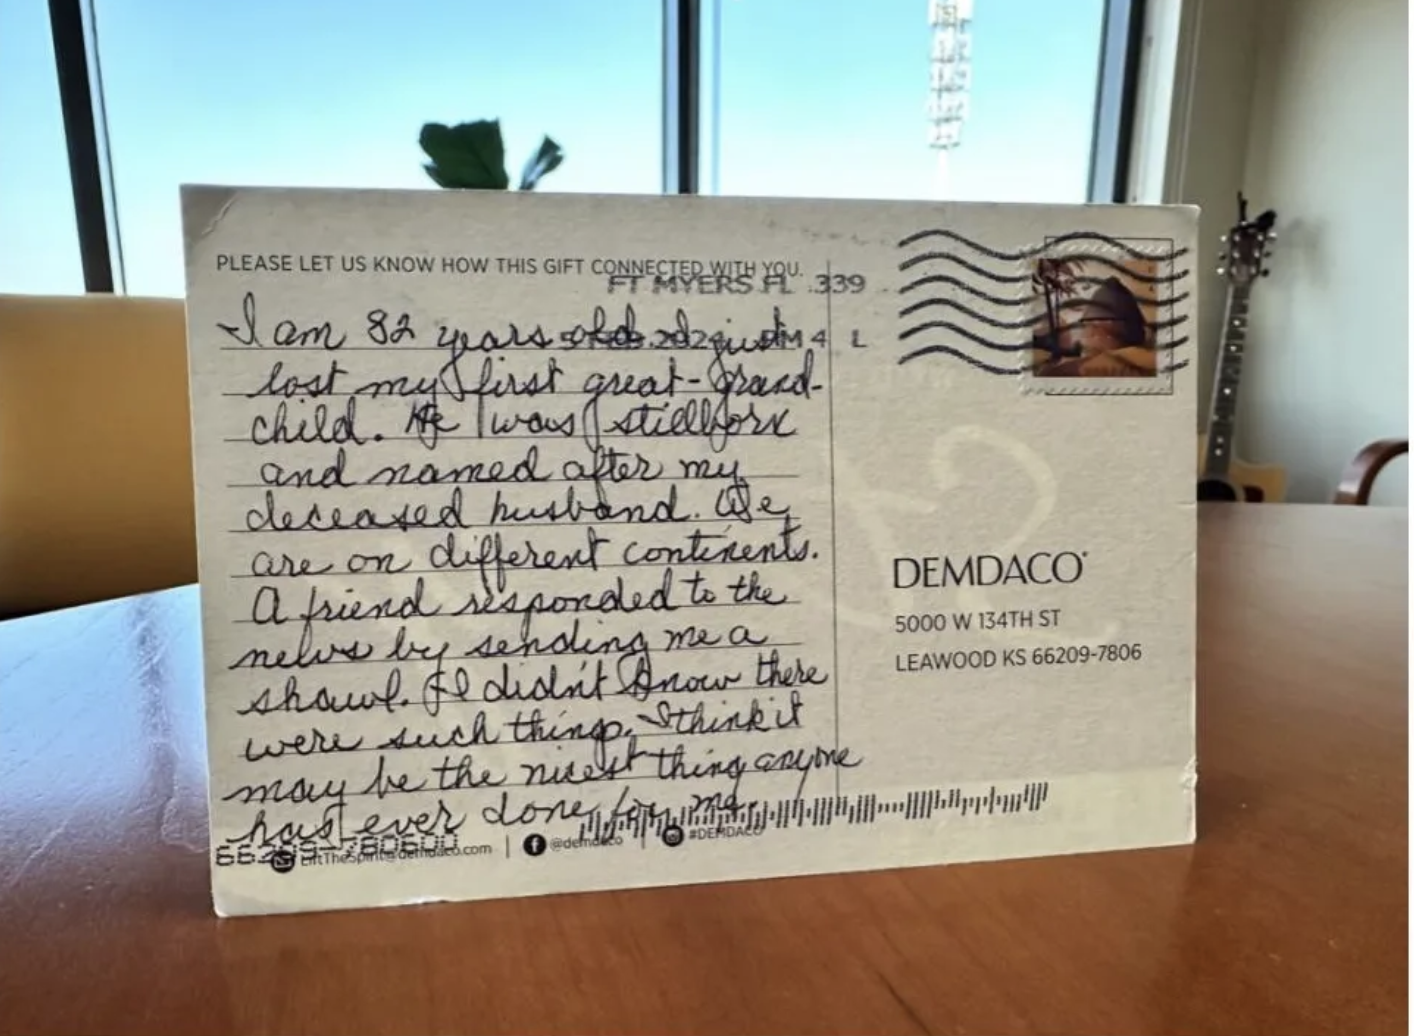 PLEASE LET US KNOW HOW THIS GIFT CONNECTED WITH YOU.
FT MYERS FL 339
PM 4 L
I am 82 years old. I just
lost my first great-grand-
child. He was stillborn
and named after my
deceased husband. We
are on different continents.
A friend responded to the
news by sending me a
shawl. I didn't know there
were such things. I think it
may be the nicest thing anyone
has ever done for me.
DEMDACO
5000 W 134TH ST
LEAWOOD KS 66209-7806
LiftTheSpirit@demdaco.com | @demdaco | #DEMDACO